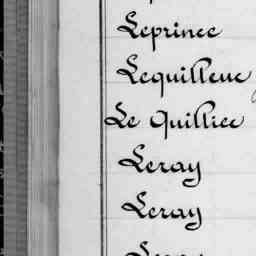 Leprince
Lequilleuc
Le Quilliec
Leray
Leray
Leray